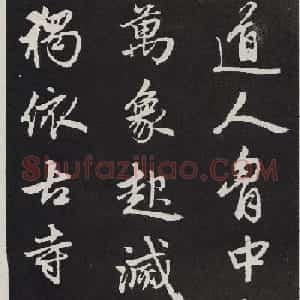 道人胷中
萬象起滅
獨依古寺
Shufaziliao.COM